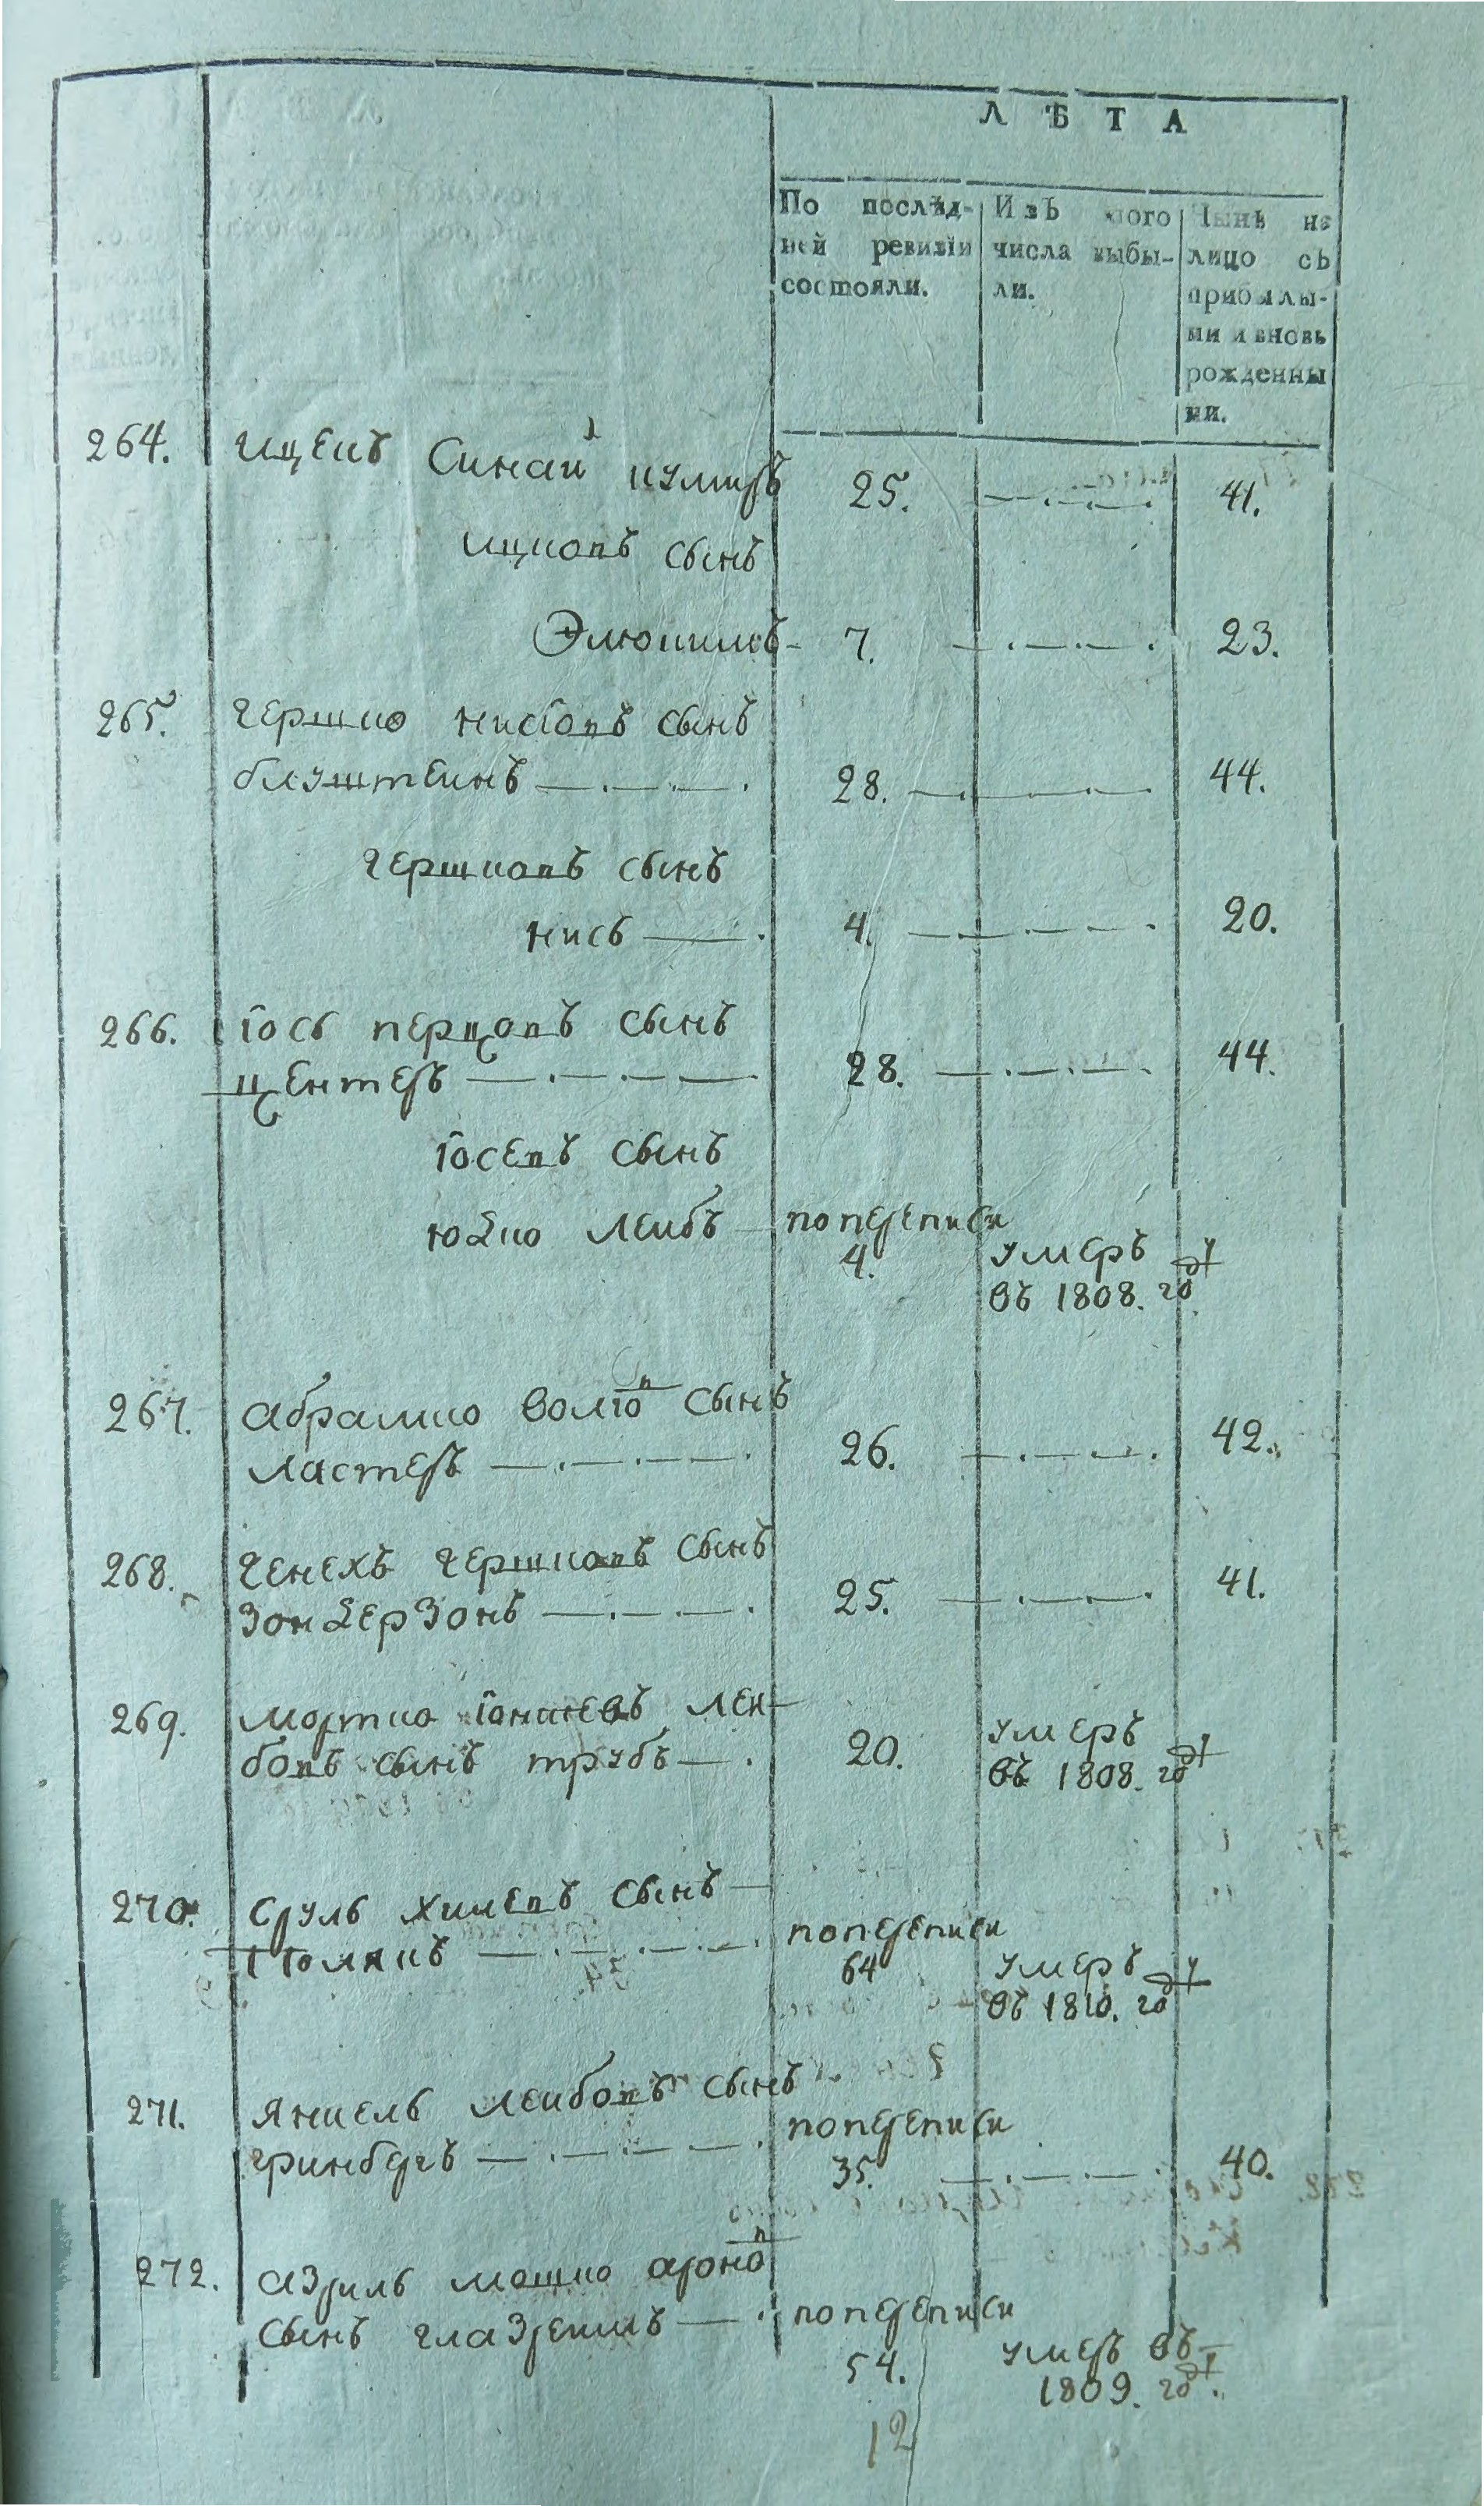 ЛѢТА
По послѣд-
ней ревизіи
состояли.
Изъ того
числа выбы-
ли.
Нынѣ на
лицо съ
прибылы-
ми и вновь
рожденны
ми.
264. ицекъ Синай кумиръ 25. 41.
ицковъ сынъ
7. 23.
265. гершко нисіовъ сынъ
блуштеинъ 28. 44.
гершковъ сынъ
нись 4. 20.
266. іось перцовъ сынъ
центеръ 28. 44.
іосевъ сынъ
юдко леибъ попереписи
4. умеръ
въ 1808. году
267. абрамко волфовъ сынъ
ластеръ 26. 42.
268. генехъ гершковъ сынъ
зондерзонъ 25. 41.
269. мортко лей-
бовъ сынъ трубъ 20. умеръ
въ 1808. году
270. сруль хилевъ сынъ
попереписи
64 умеръ
въ 1810. году
271. янкель леибовъ сынъ
гринбергъ попереписи
35. 40.
272. азриль мошко аронов
сынъ попереписи
54. умеръ въ
1809. году.
12